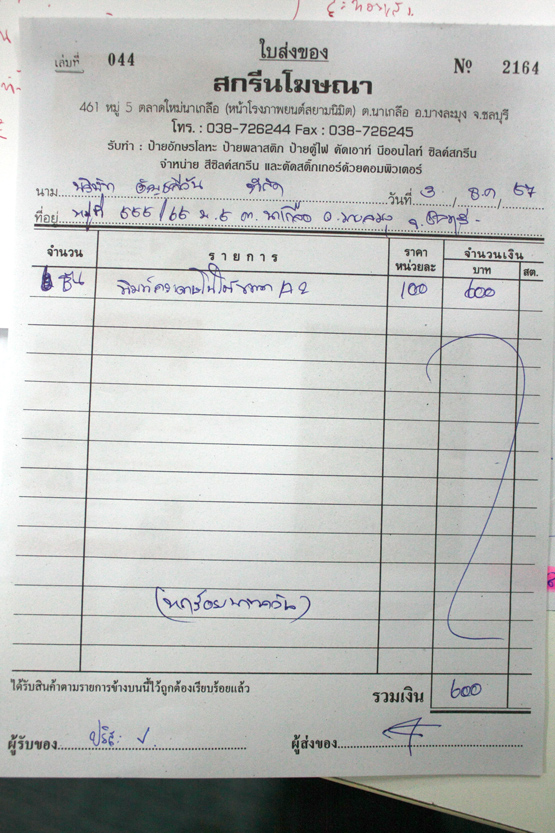 ใบส่งของ
เล่มที่ 044
Nº 2164
สกรีนโฆษณา
461 หมู่ 5 ตลาดใหม่นาเกลือ (หน้าโรงภาพยนต์สยามนิมิต) ต.นาเกลือ อ.บางละมุง จ.ชลบุรี
โทร. : 038-726244 Fax : 038-726245
รับทำ : ป้ายอักษรโลหะ ป้ายพลาสติก ป้ายตู้ไฟ คัดเอาท์ นีออนไลท์ ซิลค์สกรีน
จำหน่าย สีซิลค์สกรีน และตัดสติ๊กเกอร์ด้วยคอมพิวเตอร์
นาม บริษัท จำกัด วันที่ 3 / ธ.ค / 57
ที่อยู่ 555/65 ม.5 ต.นาเกลือ อ.บางละมุง จ.ชลบุรี
จำนวน รายการ ราคาหน่วยละ จำนวนเงิน
บาท สต.
6 ชิ้น A2 100 600
(หกร้อยบาทถ้วน)
ได้รับสินค้าตามรายการข้างบนนี้ไว้ถูกต้องเรียบร้อยแล้ว
รวมเงิน 600
ผู้รับของ ผู้ส่งของ